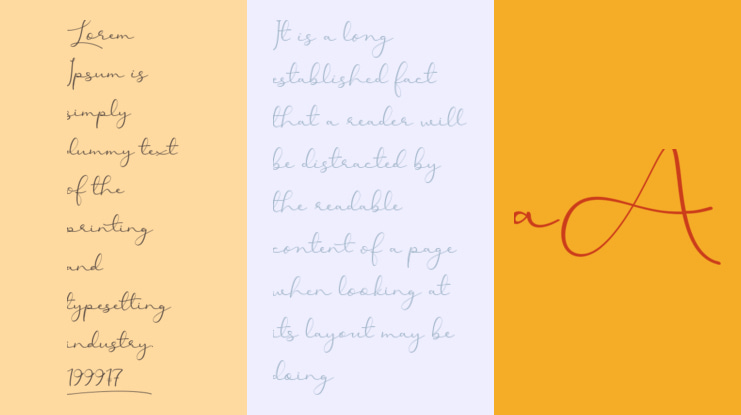 Lorem
Ipsum is
simply
dummy text
of the
printing
and
typesetting
industry
199917
It is a long
established fact
that a reader will
be distracted by
the readable
content of a page
when looking at
its layout may be
doing
aA